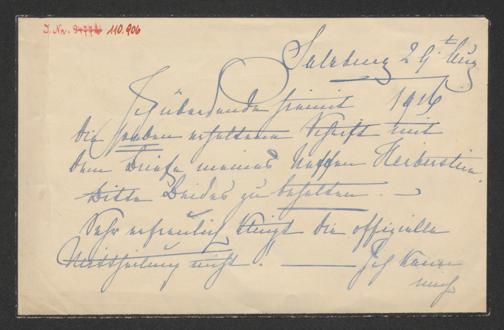 I. Nr. 110.906
Salzburg 29t Aug.
1916
Ich übersende hiemit
die soeben erhaltene Schrift mit
dem Briefe meines Neffen Herberstein.
Bitte Beides zu behalten. —
Sehr erfreulich klingt die offizielle
Mittheilung nicht! — Ich kann
mich